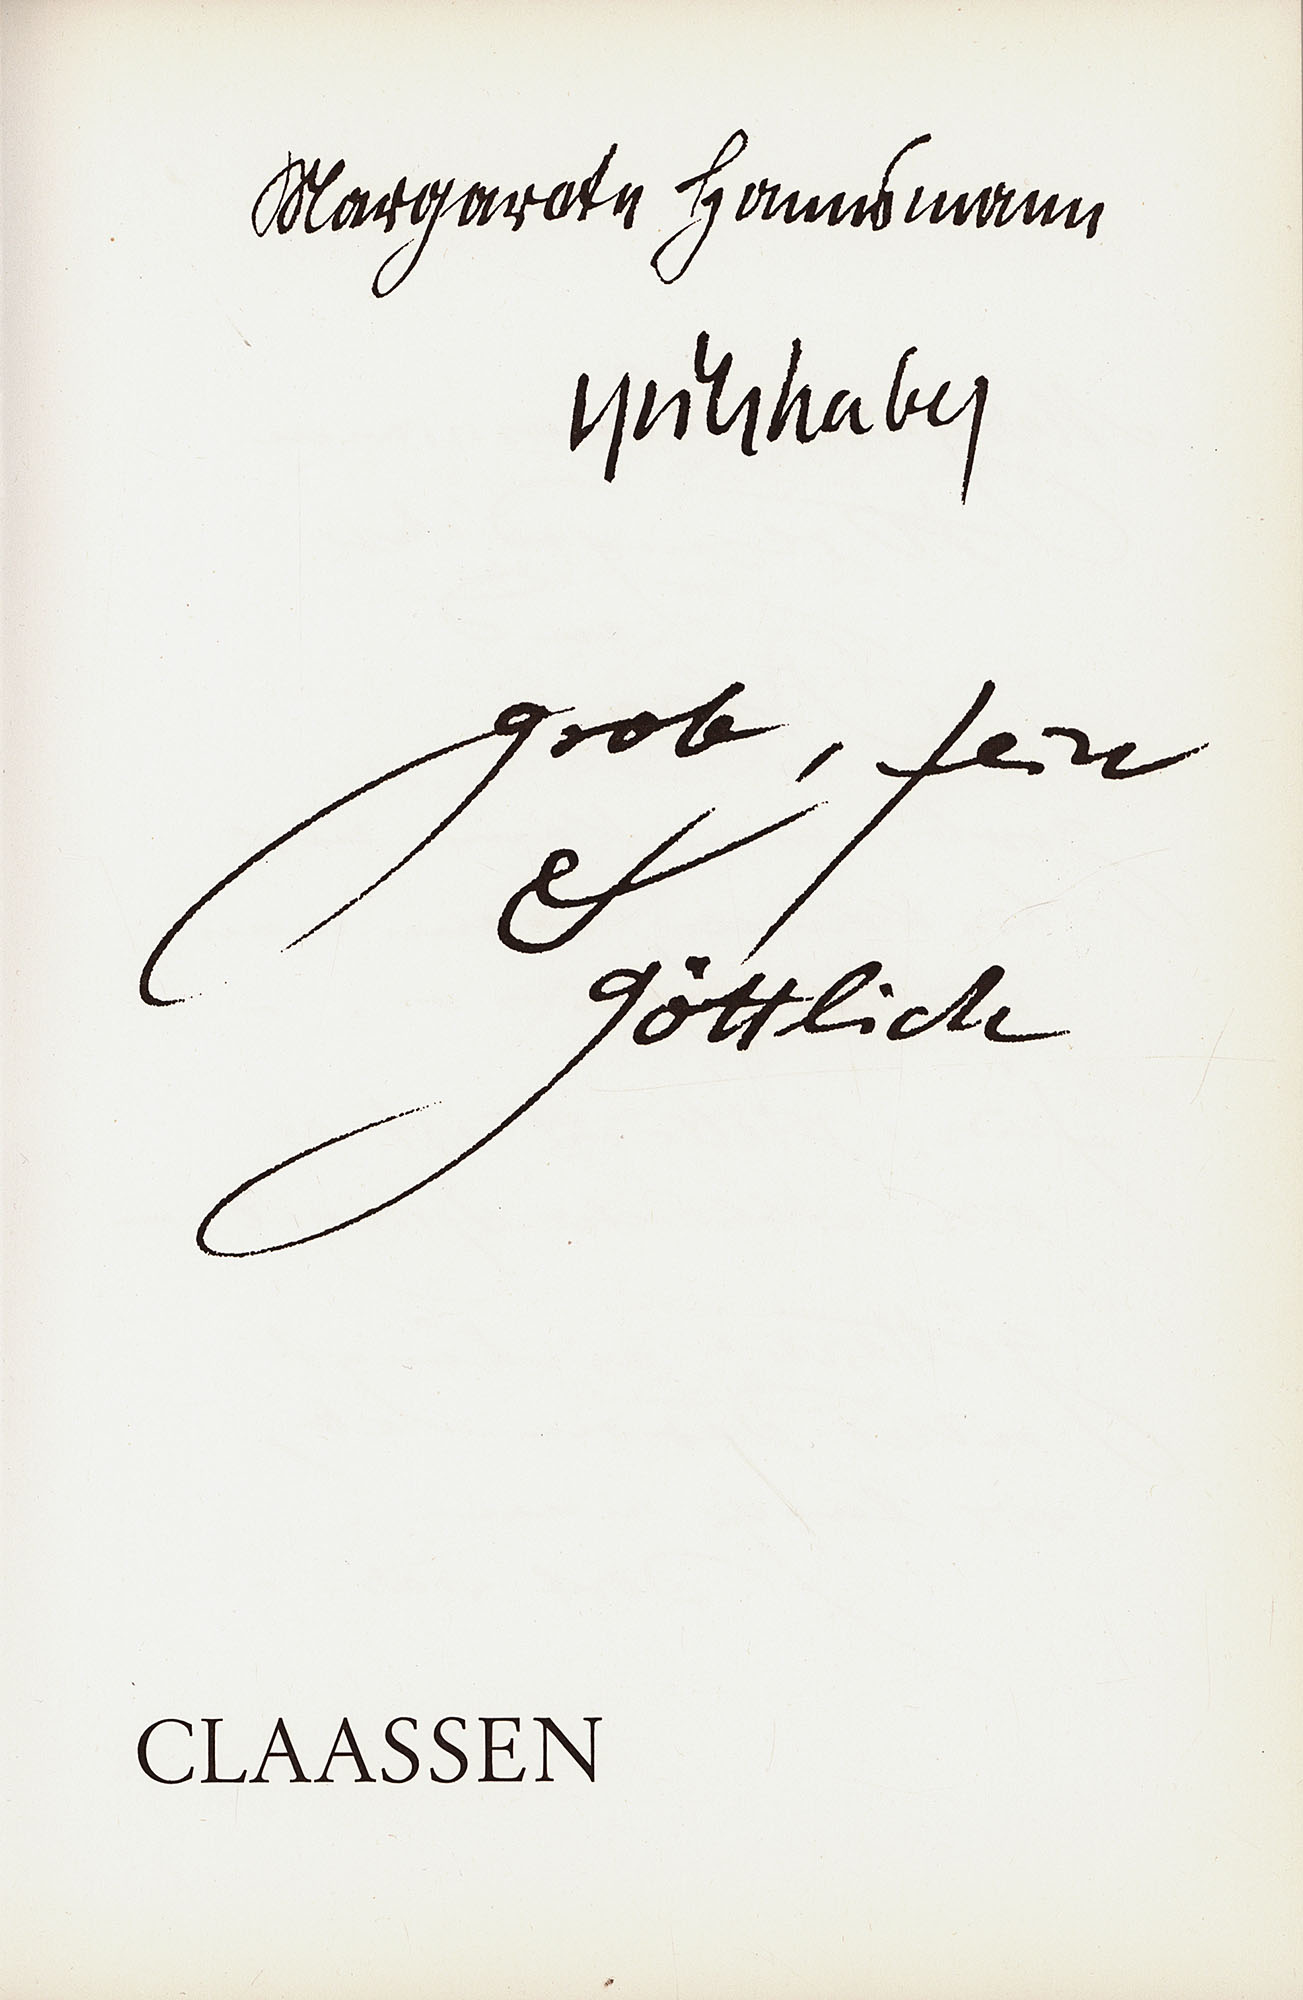 Margarete Hannsmann
Grieshaber
grob, fein
&
göttlich
CLAASSEN